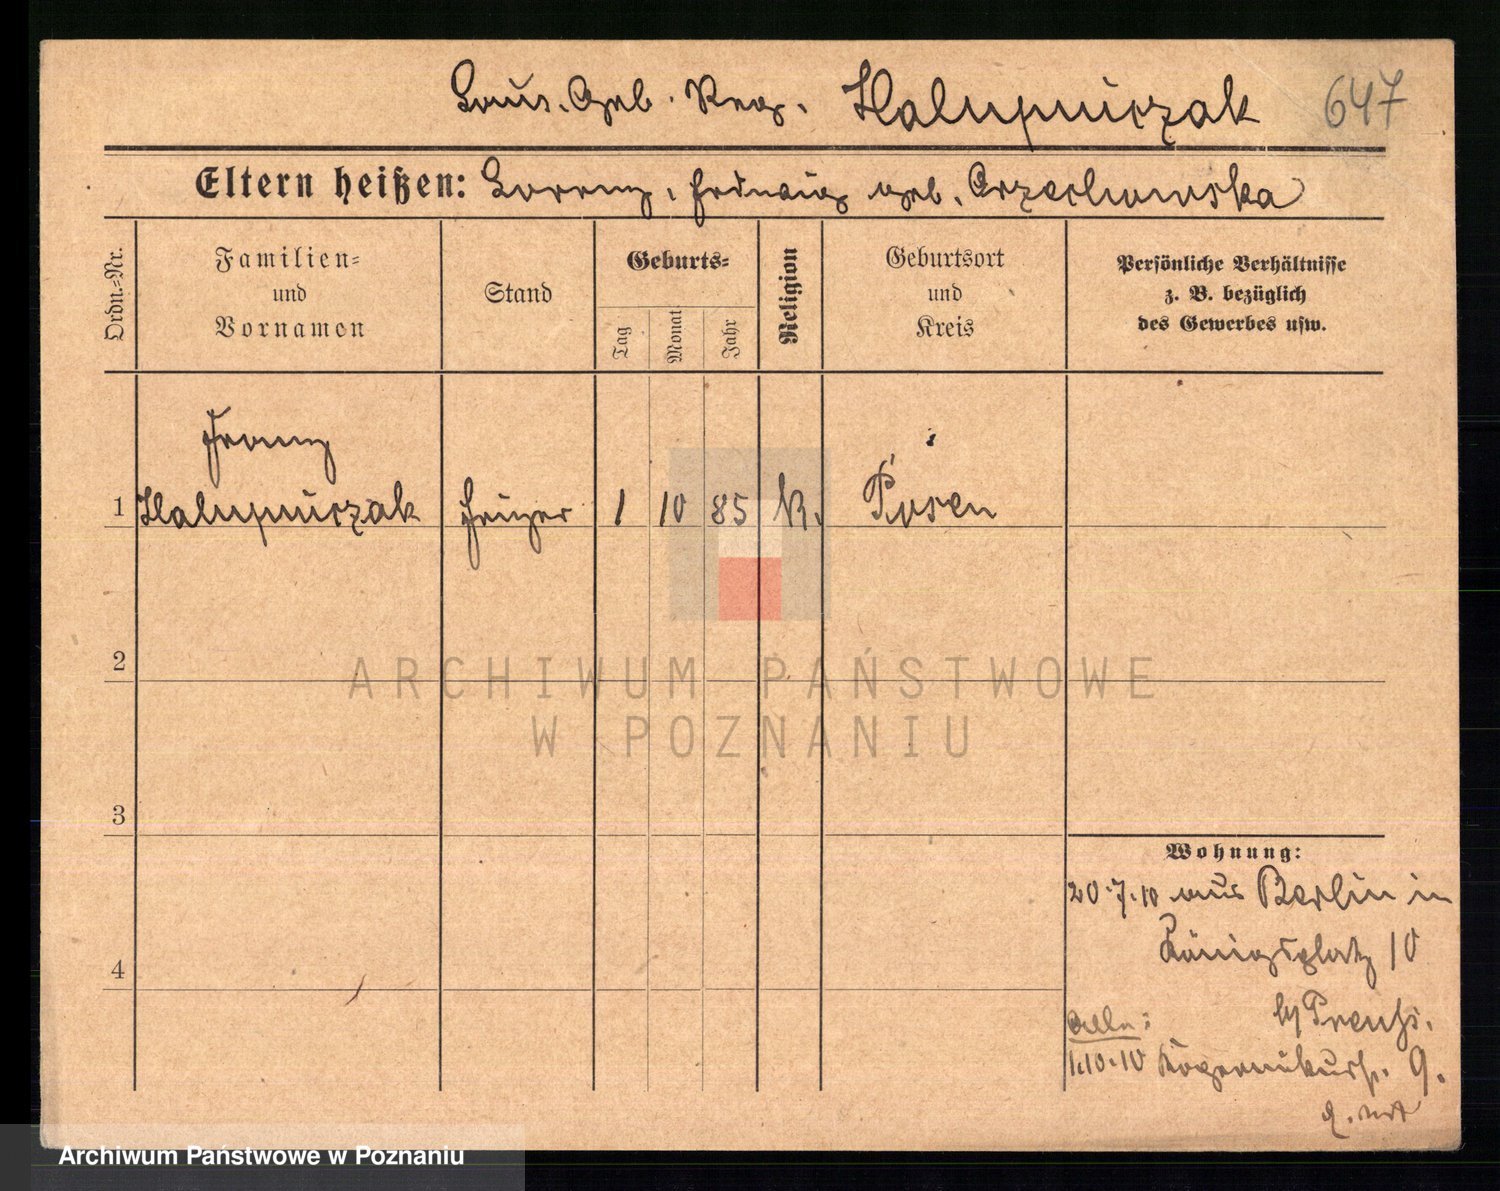 Laus. Geb. Reg. Halupniczak 647
Eltern heißen: Lorenz, Hedwig geb. Orzechowska
Ordn.-Nr.
Familien-
und
Vornamen
Stand
Geburts-
Tag
Monat
Jahr
Religion
Geburtsort
und
Kreis
Persönliche Verhältnisse
z. B. bezüglich
des Gewerbes usw.
Franz
1 Halupniczak Heizer 1 10 85 K. Posen
2
ARCHIWUM PAŃSTWOWE
W POZNANIU
3
Wohnung:
20.7.10 aus Berlin in
Königsplatz 10
4
by Preuß.
1.10.10 9.
Archiwum Państwowe w Poznaniu